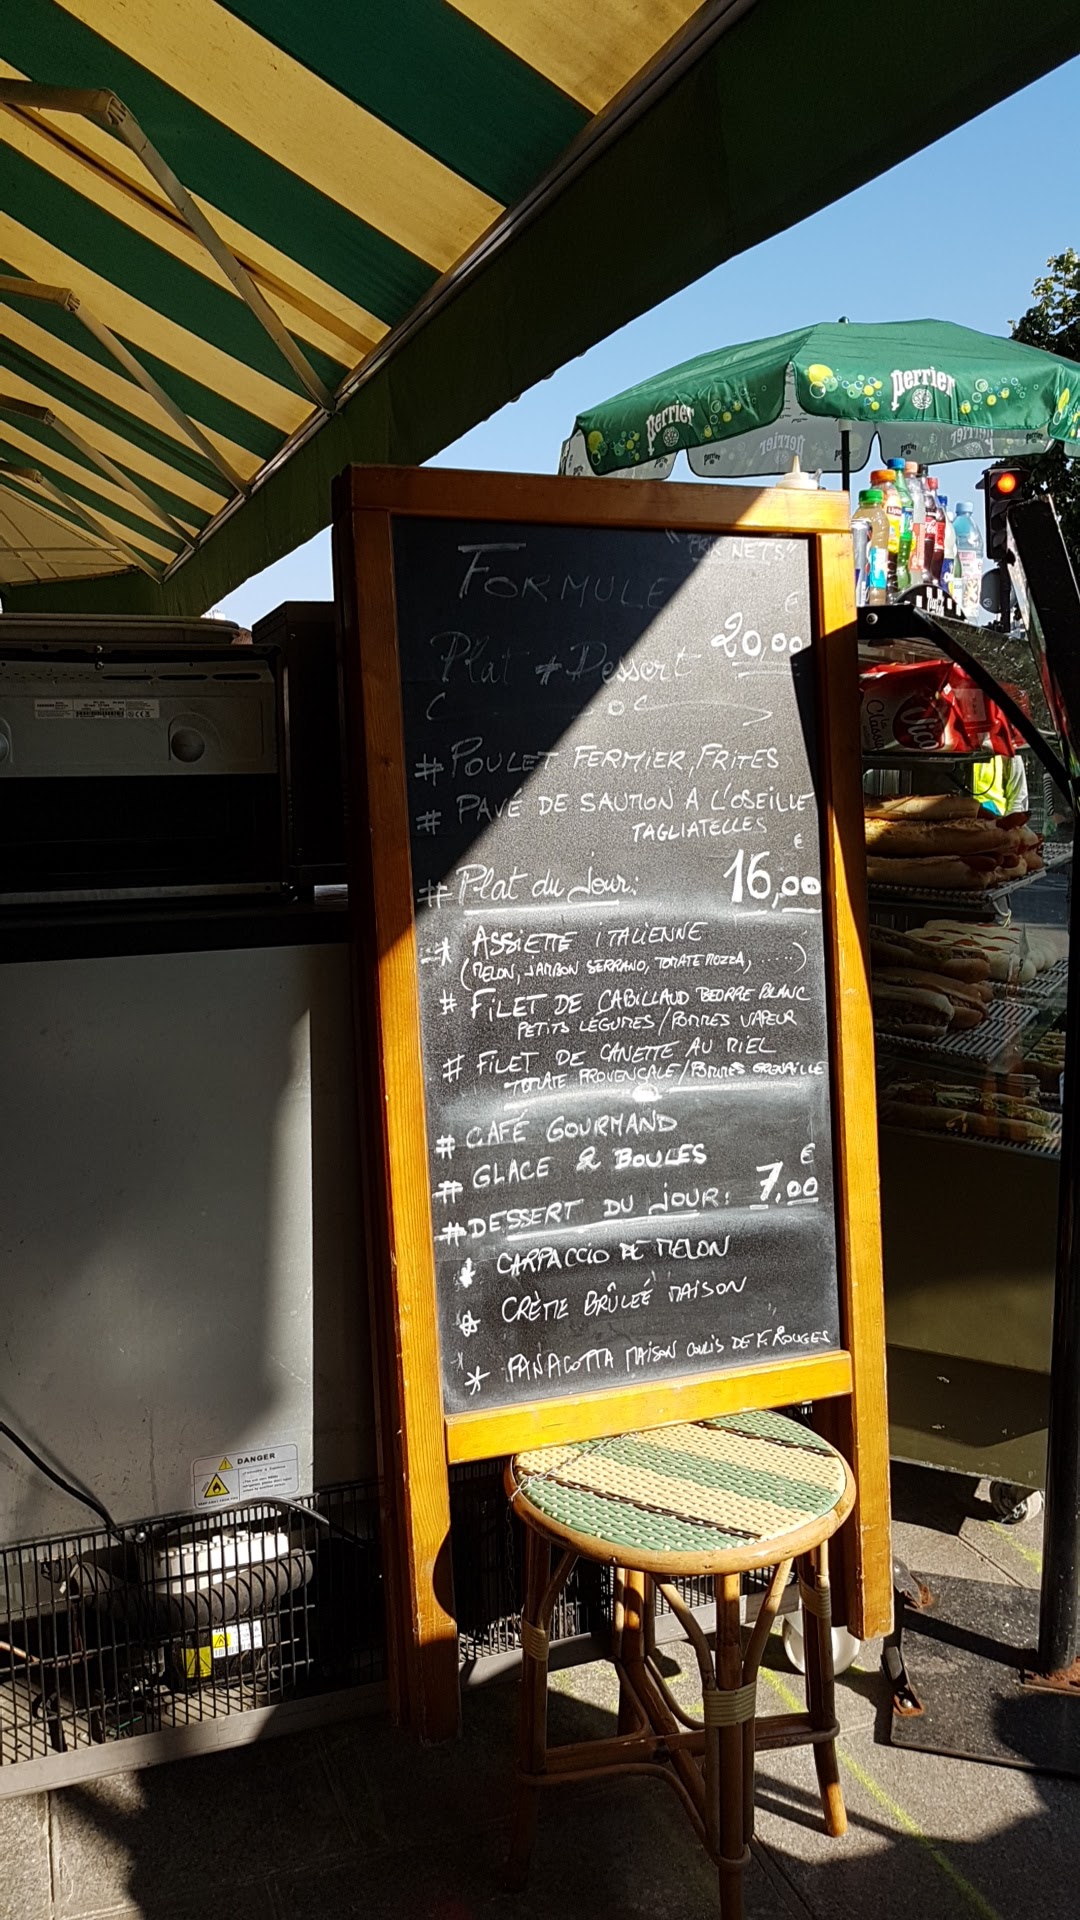 perrier
perrier
"PRIX NETS"
FORMULE
€
Plat # Dessert 20,00
# POULET FERMIER, FRITES
# PAVÉ DE SAUMON A L'OSEILLE
TAGLIATELLES
€
# Plat du Jour: 16,00
* ASSIETTE ITALIENNE
(MELON, JAMBON SERRANO, TOMATE MOZZA, .....)
# FILET DE CABILLAUD BEURRE BLANC
PETITS LÉGUMES / POMMES VAPEUR
# FILET DE CANETTE AU MIEL
TOMATE PROVENCALE / POMMES GRENAILLE
# CAFÉ GOURMAND
# GLACE 2 BOULES
€
# DESSERT DU JOUR: 7,00
* CARPACCIO DE MELON
* CRÈME BRÛLEÉ MAISON
* PANACOTTA MAISON COULIS DE F. ROUGES
la Classic
Vico
DANGER